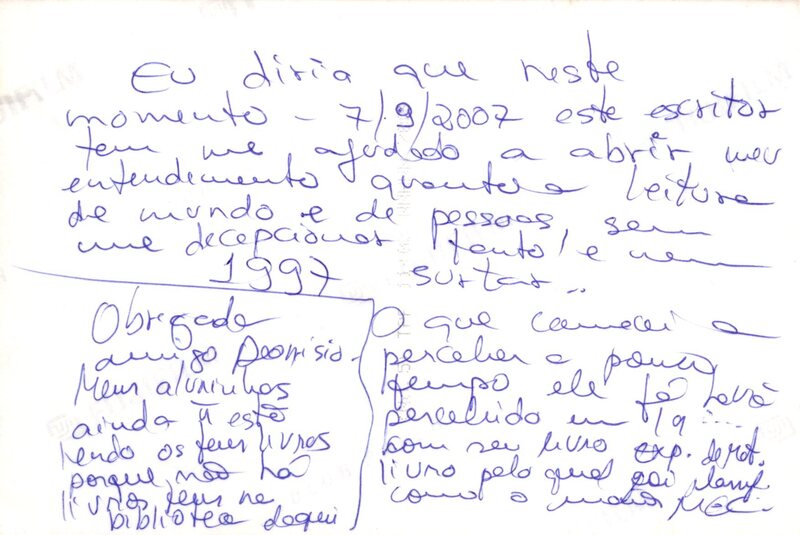 Eu diria que neste
momento - 7/9/2007 este escritor
tem me ajudado a abrir meu
entendimento quanto a leitura
de mundo e de pessoas, sem
me decepcionar tanto! e nem
surtar...
1997
Obrigada
amigo Deonisio.
Meus aluninhos
ainda ñ estão
lendo os teus livros
porque não há
livros teus na
biblioteca daqui
O que comecei a
perceber a pouco
tempo ele já havia
percebido em 19.....
com seu livro exp. de
livro pelo qual foi
como o MEC.